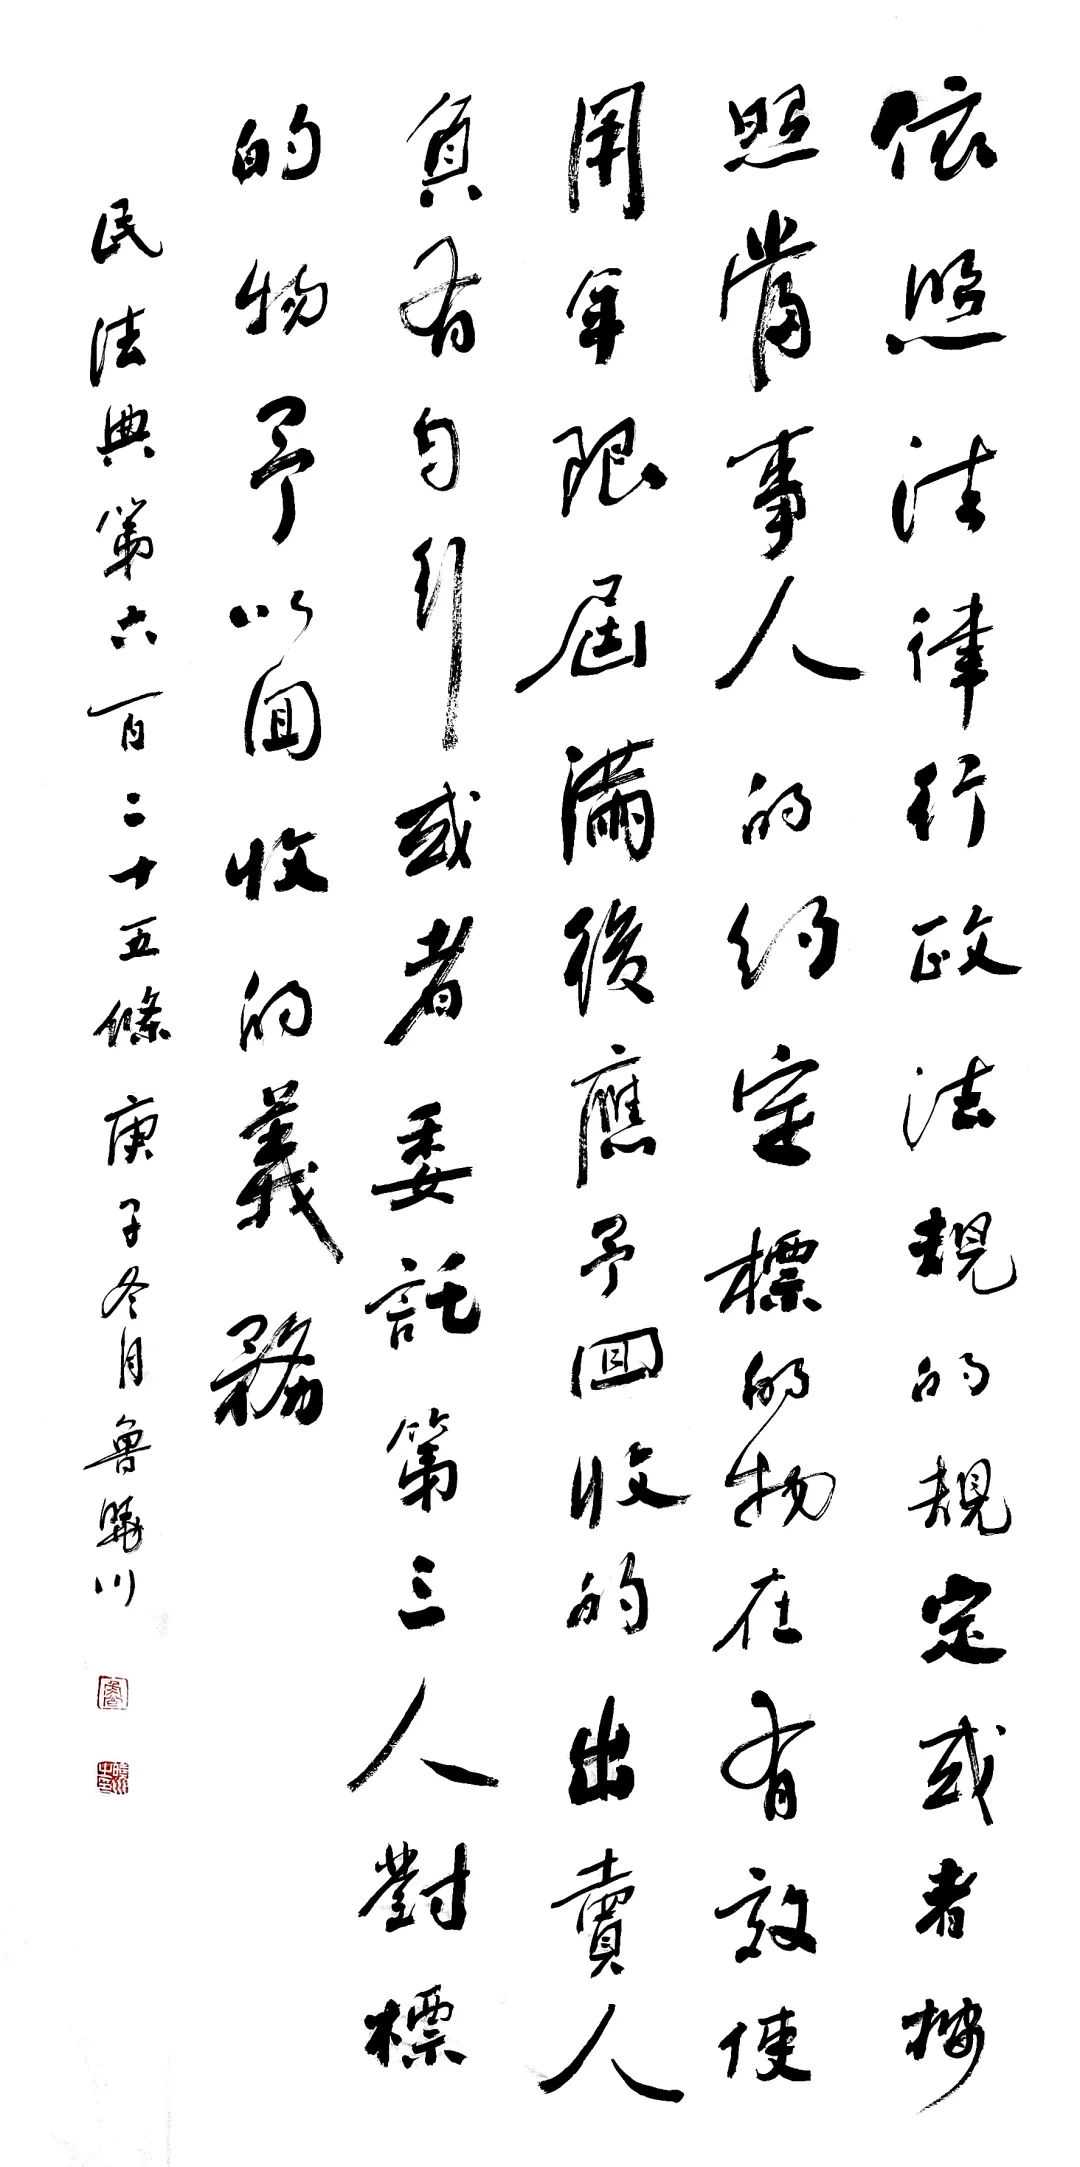 依照法律行政法規的規定或者按
照當事人的約定標的物在有效使
用年限屆滿後應予回收的出賣人
負有自行或者委託第三人對標
的物予以回收的義務
民法典第六百二十五條 庚子冬月魯曉川